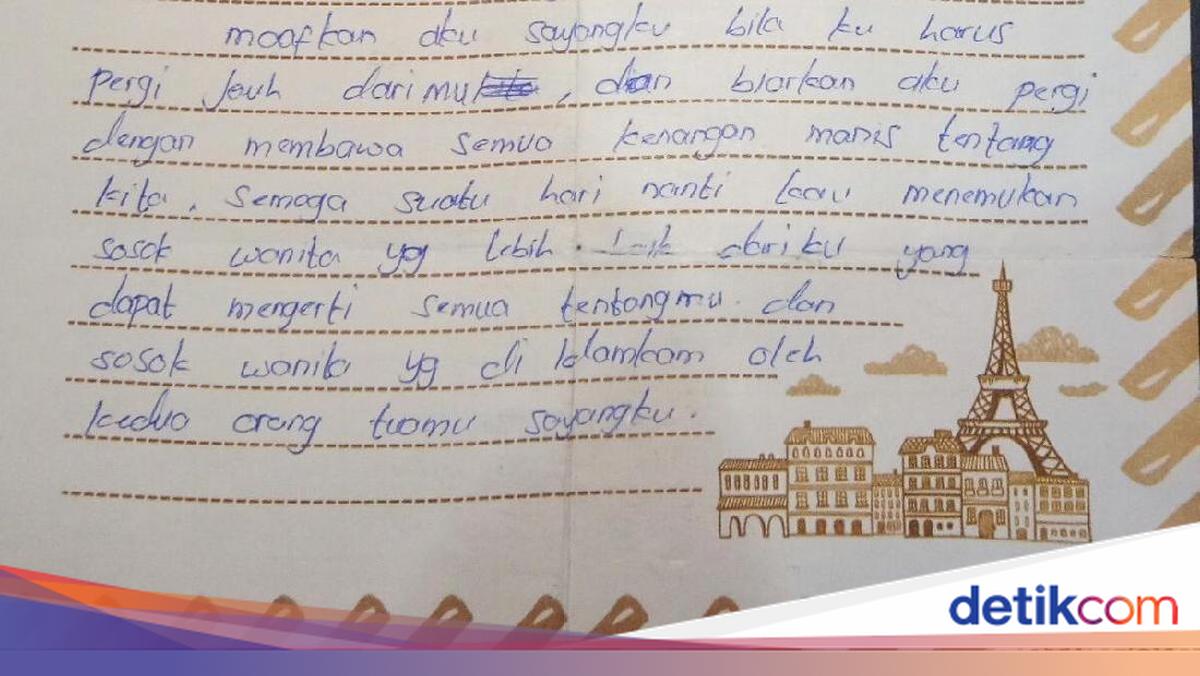 maafkan aku sayangku bila ku harus
pergi jauh darimu, dan biarkan aku pergi
dengan membawa semua kenangan manis tentang
kita. Semoga suatu hari nanti kau menemukan
sosok wanita yg lebih baik dariku yang
dapat mengerti semua tentangmu. dan
sosok wanita yg di Idamkam oleh
kedua orang tuamu sayangku.
detikcom